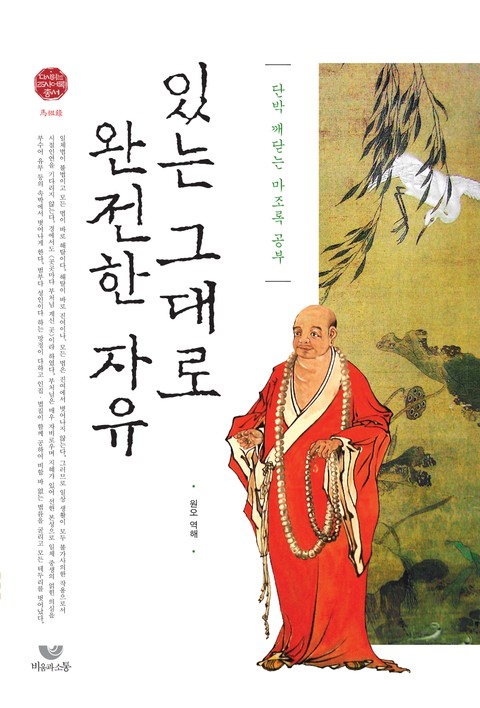 단박 깨닫는 마조록 공부
있는 그대로
완전한 자유
원오 역해
다시 읽는
조사어록
총서
馬祖錄
일체법이 불법이고 모든 법이 바로 해탈이다. 해탈이 바로 진여이니, 모든 법은 진여에서 벗어나지 않는다. 그러므로 일상 생활이 모두 불가사의한 작용으로서
시절인연을 기다리지 않는다. 경에서도 〈곳곳마다 부처님 계신 곳〉이라 하였다. 부처님은 매우 자비로우며 지혜가 있어 선한 본성으로 일체 중생의 얽힌 의심을
부수어 유무 등의 속박에서 벗어나게 한다. 범부다 성인이다 하는 망정이 다하고 인집·법집이 함께 공하여 비할 바 없는 법륜을 굴리고 모든 테두리를 벗어났다.
비움과소통